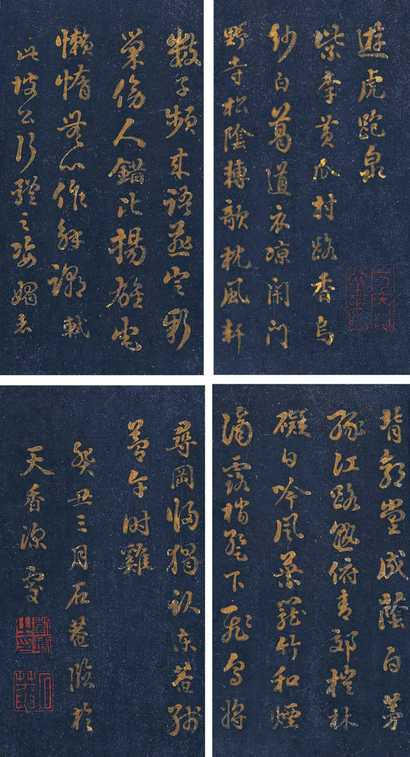 遊虎跑泉
紫李黄瓜村路香烏
紗白葛道衣凉閑門
野寺松陰轉欹枕風軒
背郭堂成蔭白茅
緣江路熟俯青郊榿林
礙日吟風葉籠竹和煙
滴露梢暫下飛烏將
數子頻來語燕定新
巢傍人錯比揚雄宅
懶惰無心作解嘲 軾
此坡公行體之姿媚者
尋岡歸獨認東菴殘
夢午時雞
癸丑三月石菴臨於
天香深處